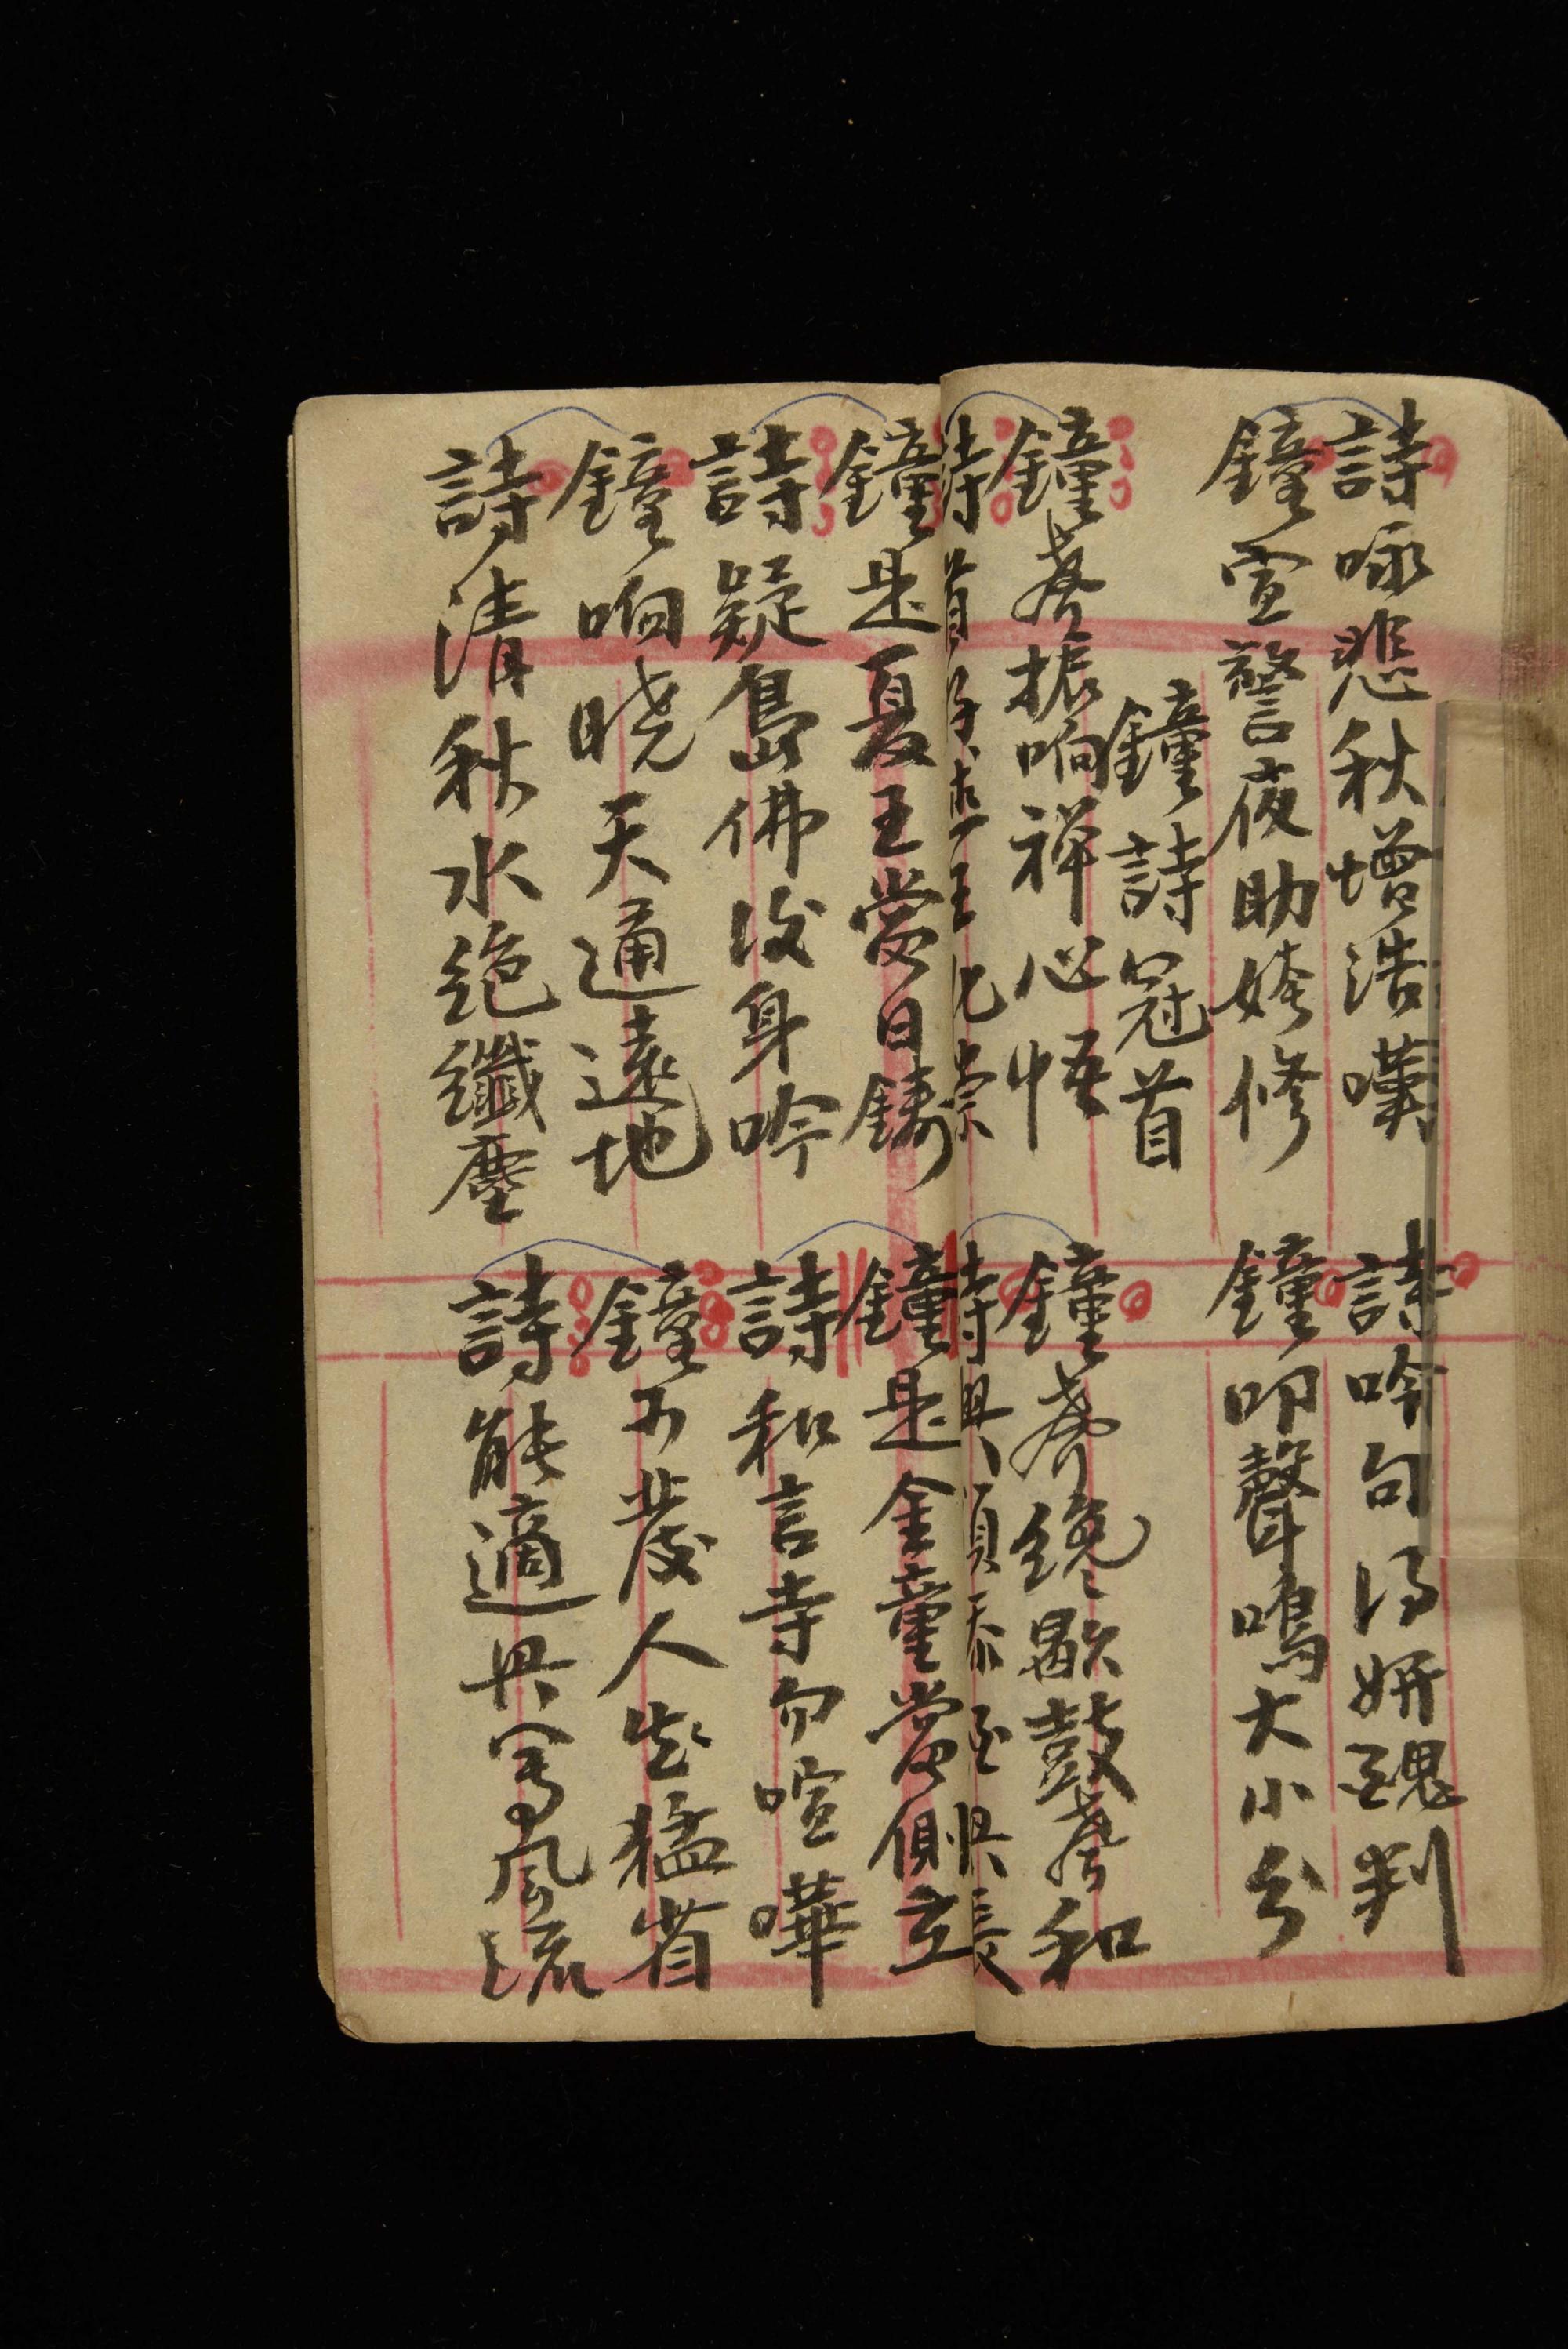 詩咏悲秋增浩嘆
詩吟句得妍醜判
鐘宣警夜助娉修
鐘叩聲鳴大小分
鐘詩冠首
鐘聲振响禅心悟
鐘聲纔歇鼓聲和
詩首
王化崇
詩興
興長
鐘是夏王當日鑄
鐘是金童當側立
詩疑島佛後身吟
詩和言寺勿喧嘩
鐘响曉天通遠地
鐘可發人生猛省
詩清秋水绝纖塵
詩能適興寄風流